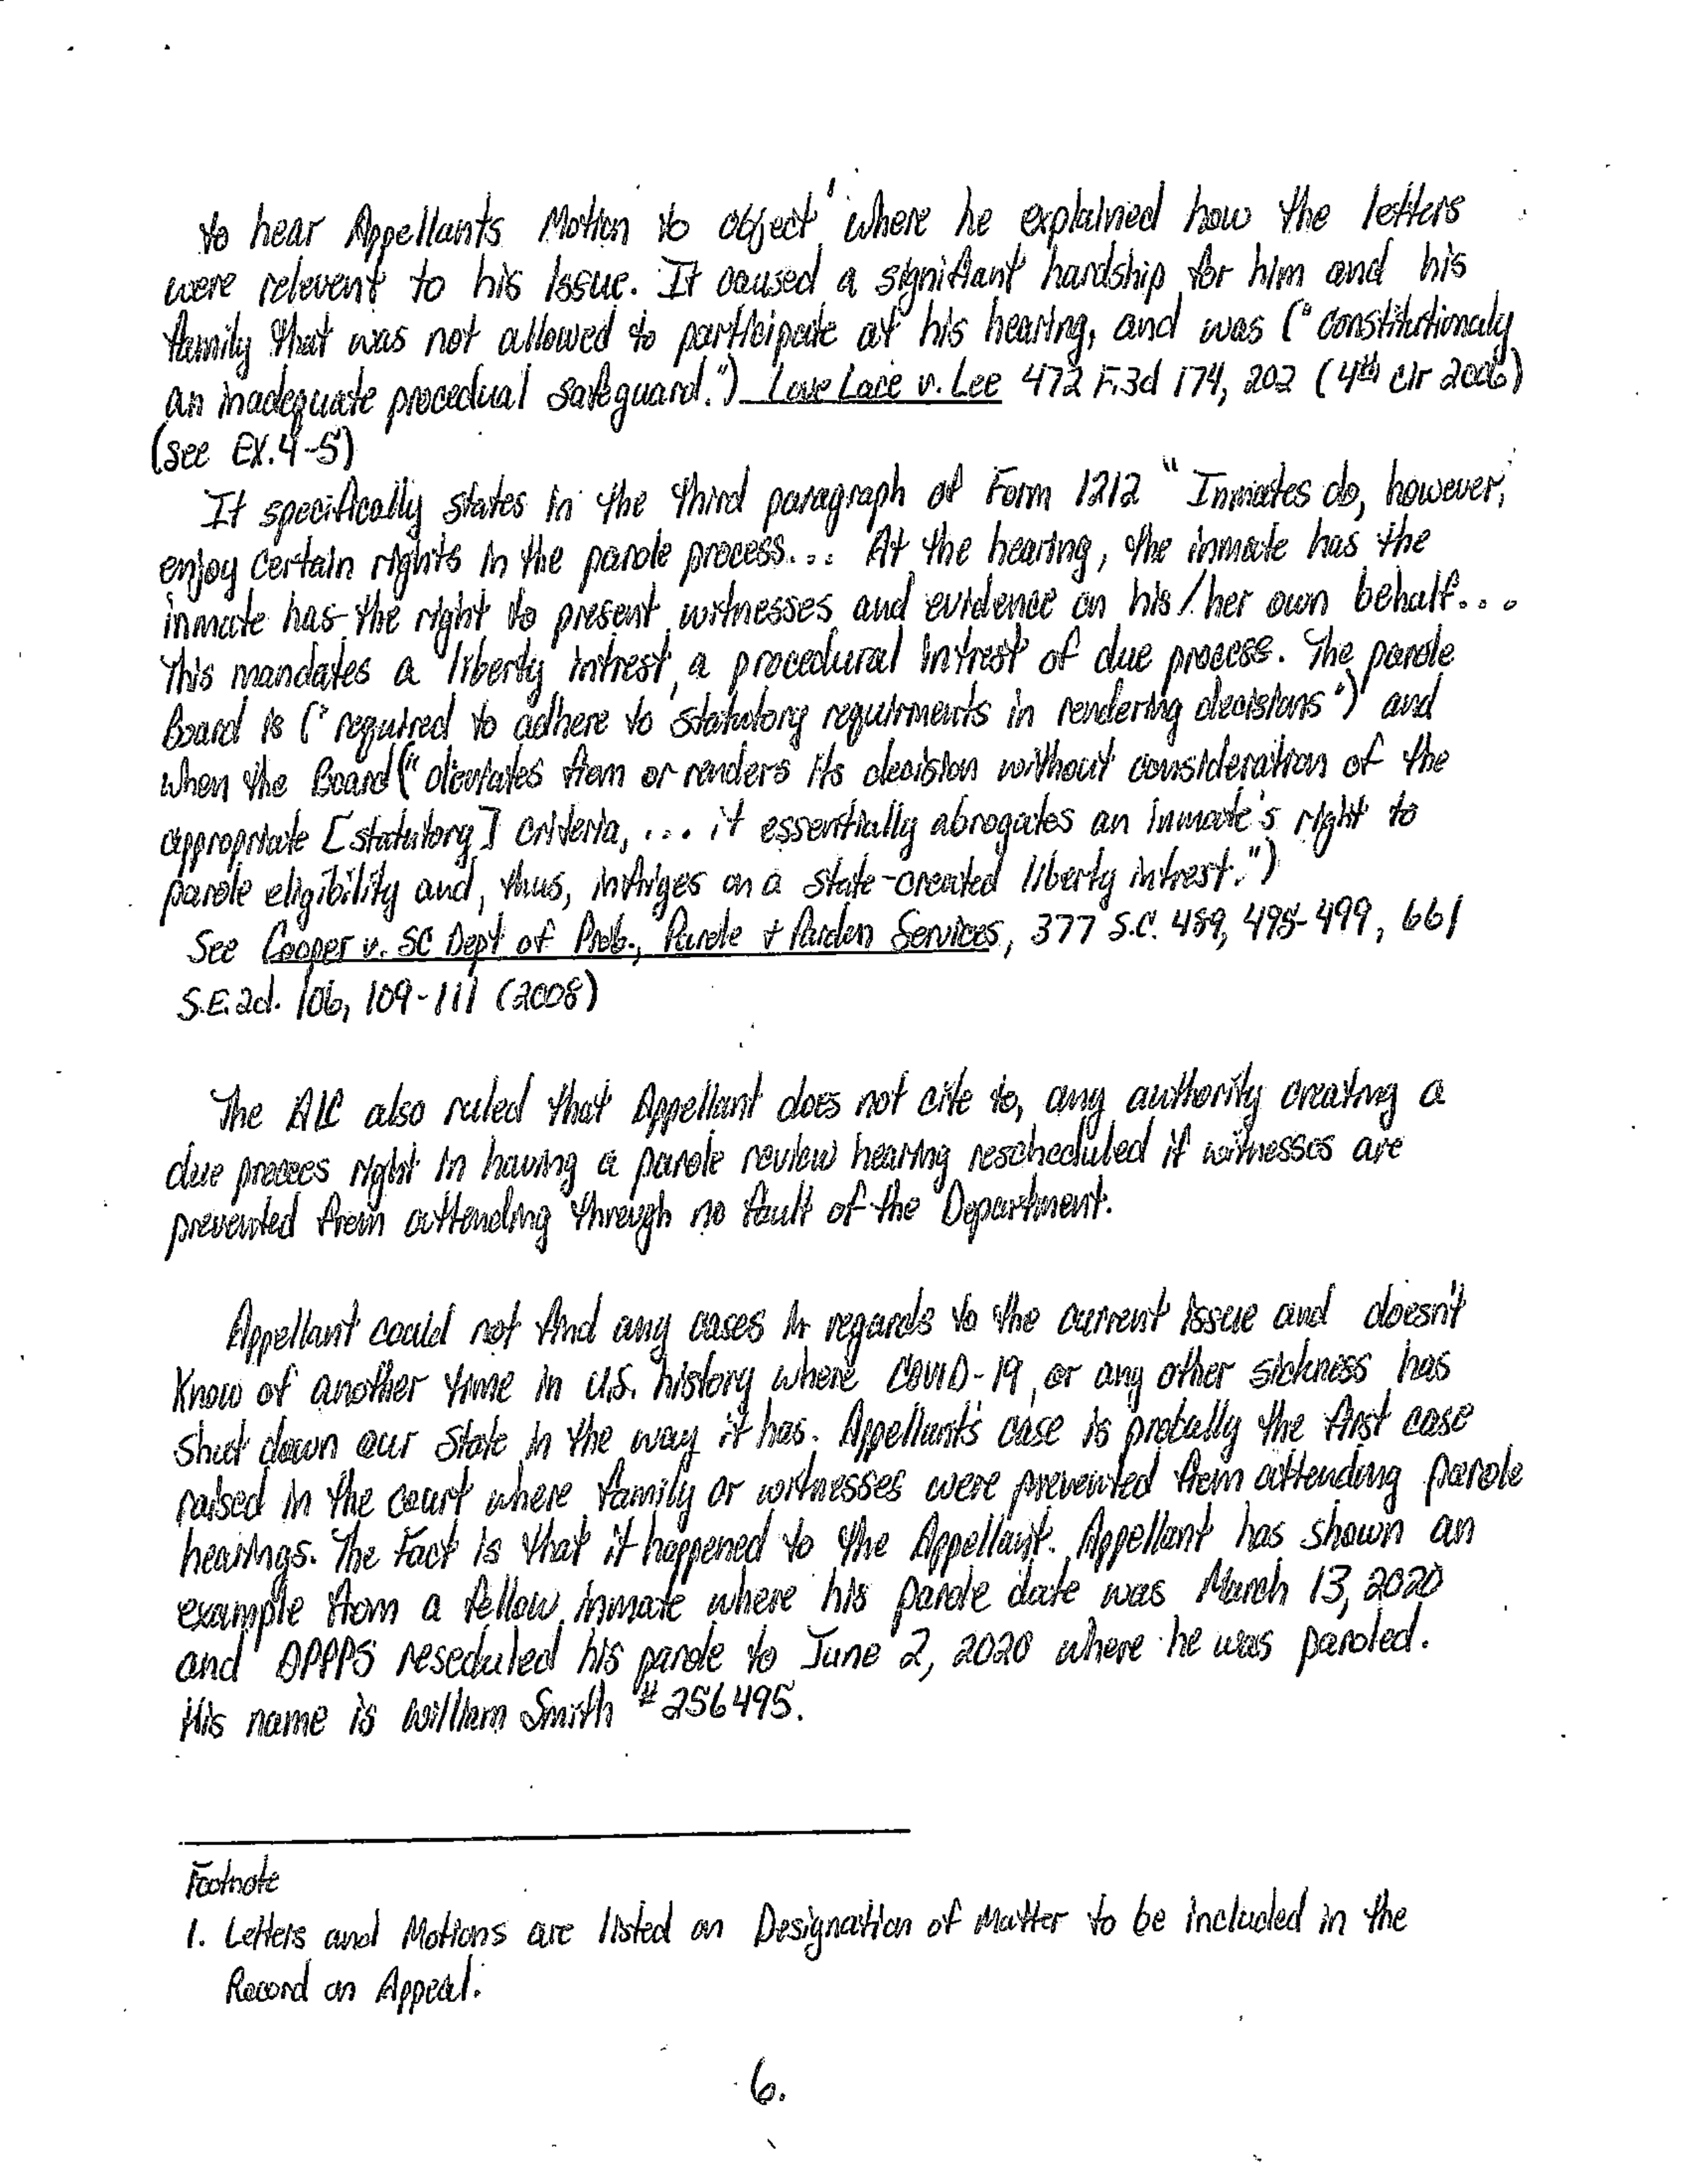 to hear Appellants Motion to object¹ where he explained how the letters
were relevent to his issue. It caused a signifiant hardship for him and his
family that was not allowed to participate at his hearing, and was ("constitutionaly
an inadequate procedual safeguard.") Love Lace v. Lee 472 F.3d 174, 202 (4th Cir 2006)
(see EX.4-5)
It specifically states in the third paragraph of Form 1212 "Inmates do, however,
enjoy certain rights in the parole process... At the hearing, the inmate has the
inmate has the right to present witnesses and evidence on his/her own behalf...
This mandates a "liberty intrest, a procedural intrest of due process. The parole
Board is ("required to adhere to statutory requirments in rendering decisions") and
when the Board ("dieviates from or renders its decision without consideration of the
appropriate [statutory] criteria, ... it essentially abrogates an inmate's right to
parole eligibility and, thus, infriges on a state-created liberty intrest.")
See Cooper v. SC Dept of Prob., Parole + Pardon Services, 377 S.C. 489, 498-499, 661
S.E.2d. 106, 109-111 (2008)
The ALC also ruled that Appellant does not cite to, any authority creating a
due process right in having a parole review hearing rescheduled if witnesses are
prevented from attending through no fault of the Department.
Appellant could not find any cases in regards to the current issue and doesn't
Know of another time in U.S. history where COVID-19, or any other sickness has
shut down our state in the way it has. Appellant's case is probally the first case
raised in the court where family or witnesses were prevented from attending parole
hearings. The Fact is that it happened to the Appellant. Appellant has shown an
example from a fellow inmate where his parole date was March 13, 2020
and DPPPS reseduled his parole to June 2, 2020 where he was paroled.
His name is William Smith #256495.
Footnote
1. Letters and Motions are listed on Designation of Matter to be included in the
Record on Appeal.
6.